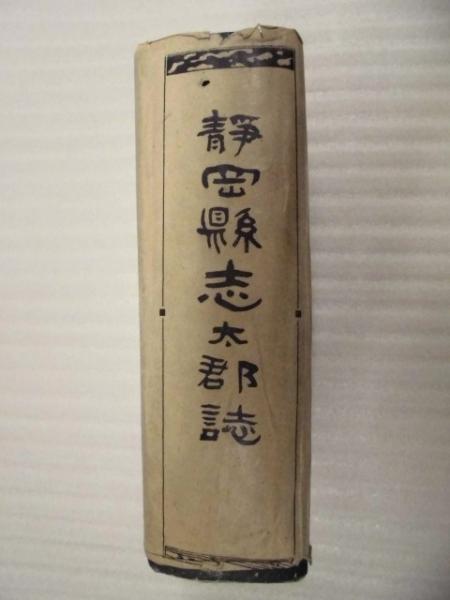 靜岡縣志太郡誌